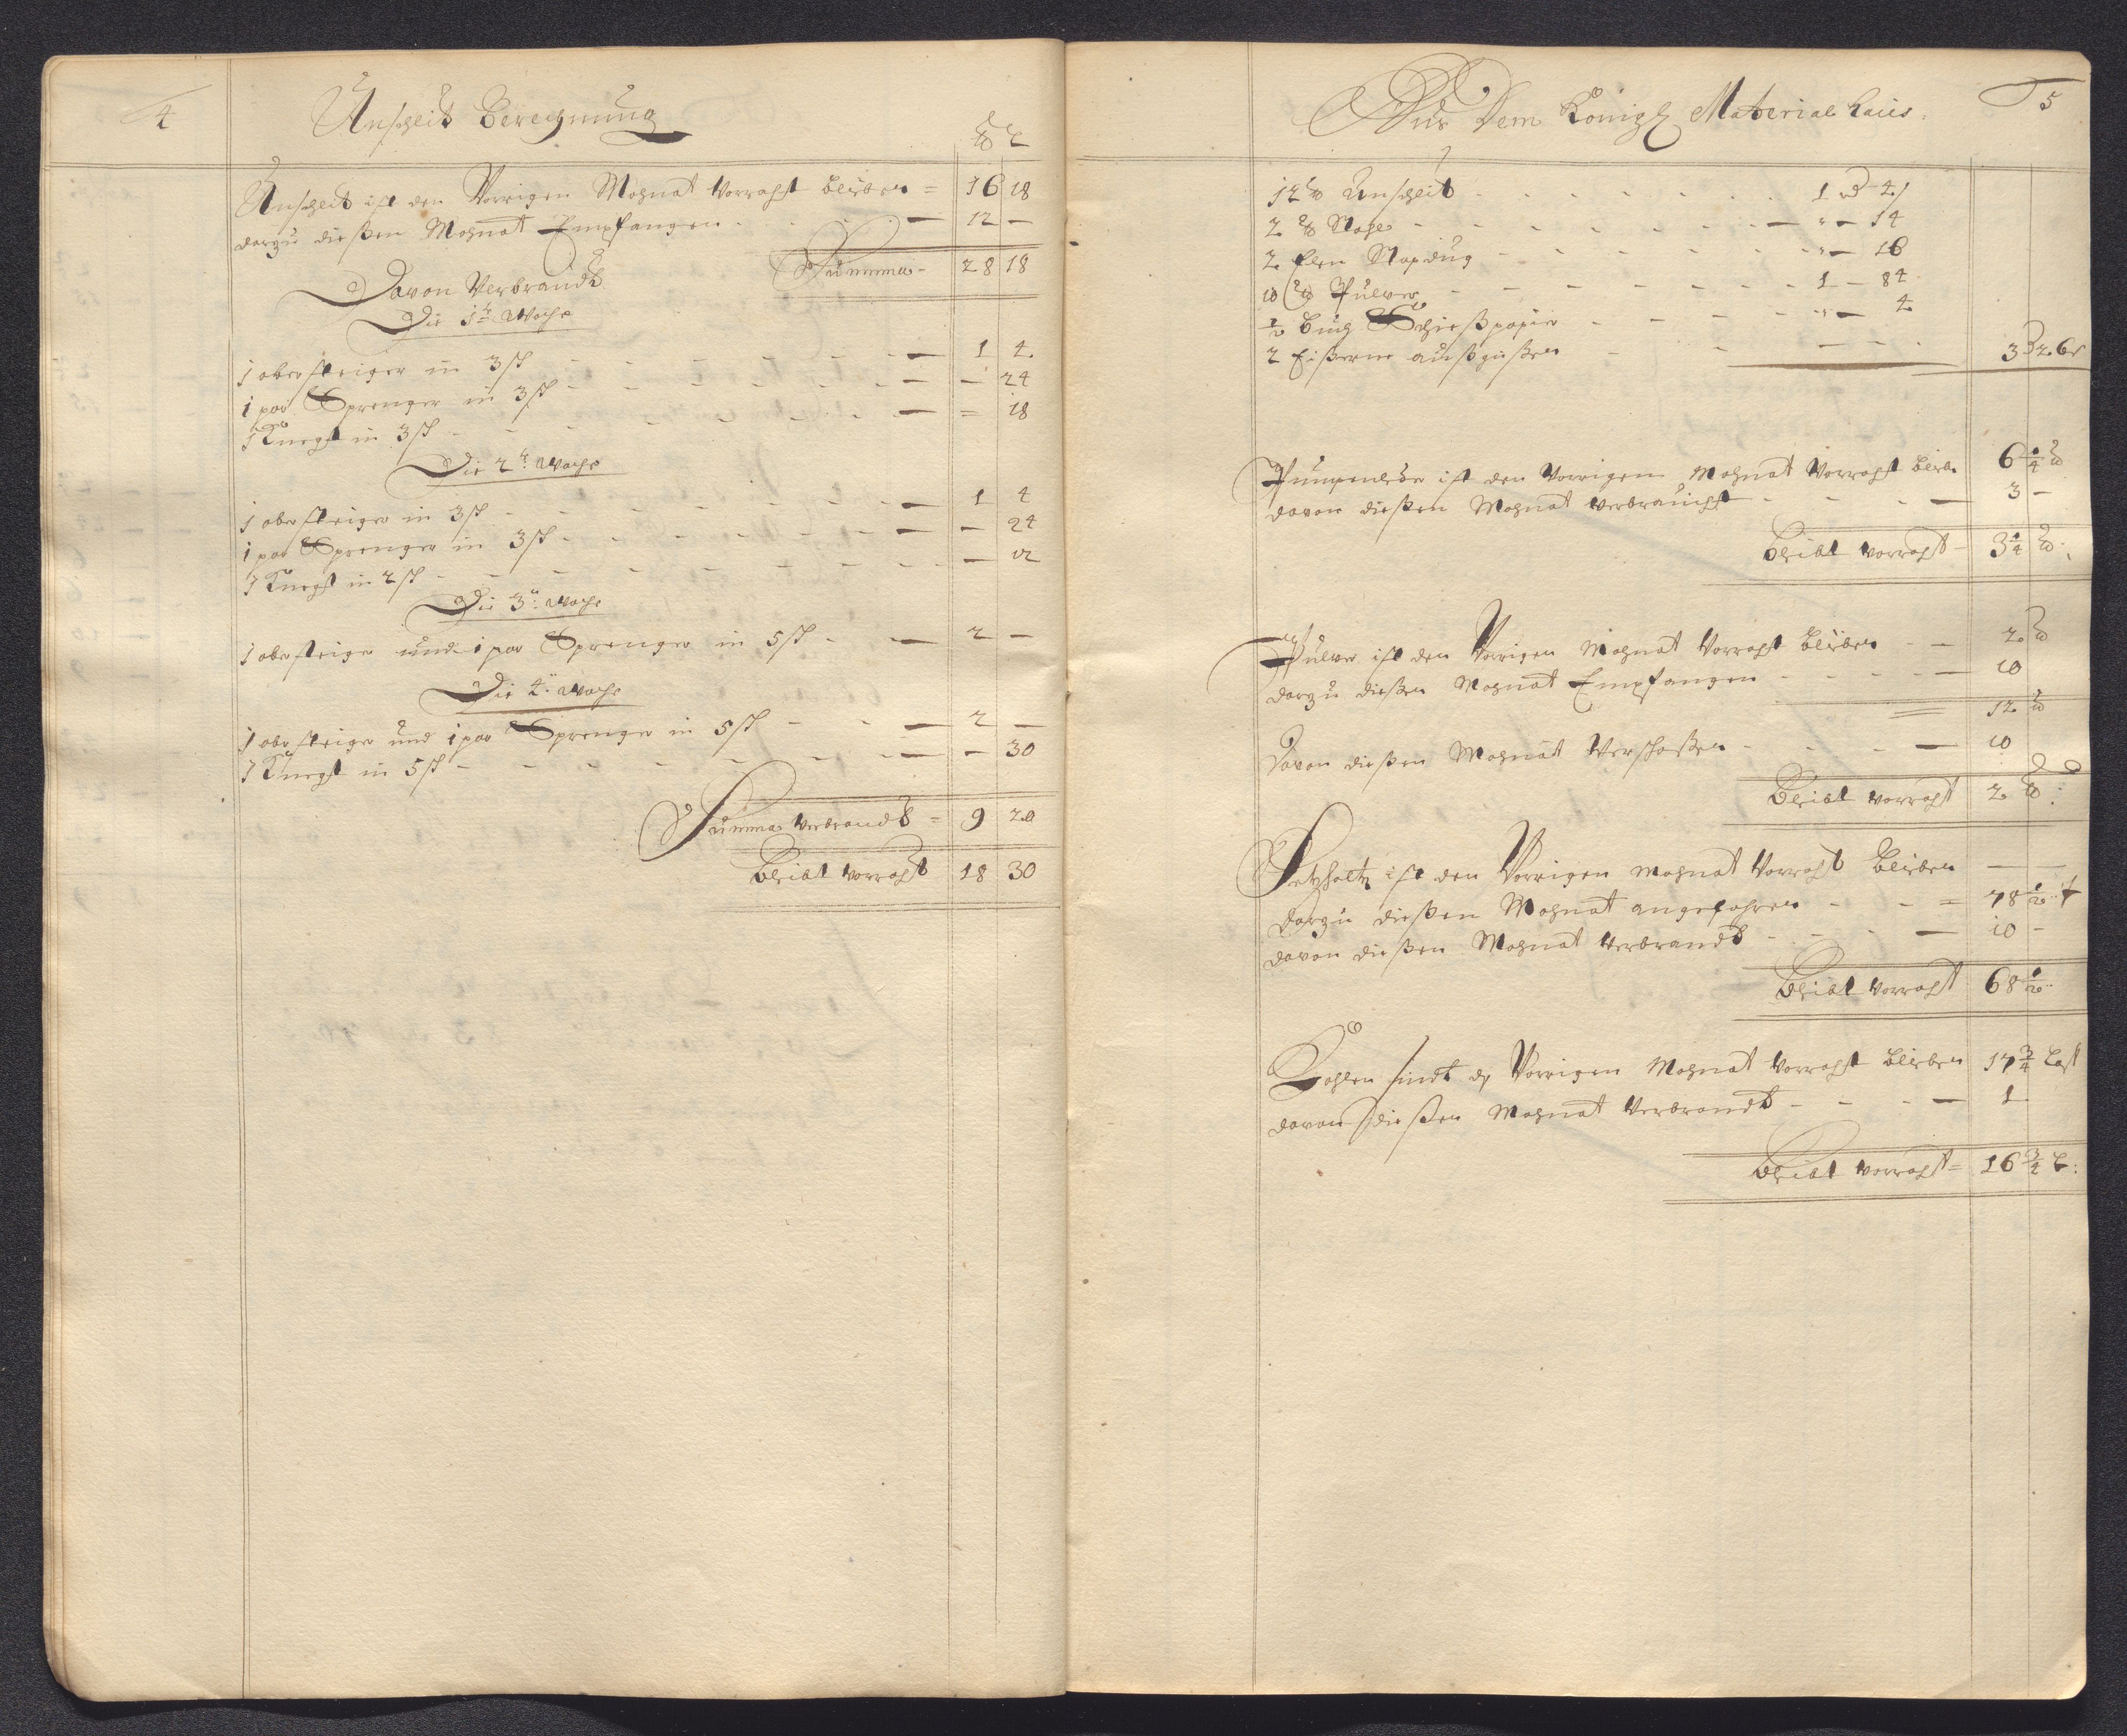 4
Unscheit Berechnung
℔ L
Unscheit ist den Vorrigen Mohnat Vorraht blieben = 16 18
darzu dießen Mohnat Empfangen - - - 12 —
Summa - 28 18
Davon Verbrandt
Die 1te Woche
1 obersteiger in 3 sch - - - 1 4
1 par Sprenger in 3 sch - - - — 24
1 Knecht in 3 sch - - - = 18
Die 2te Woche
1 obersteiger in 3 sch - - - 1 4
1 par Sprenger in 3 sch - - - — 24
1 Knecht in 2 sch - - - — 12
Die 3te Woche
1 obersteiger und 1 par Sprenger in 5 sch - — 2 —
Die 4te Woche
1 obersteiger und 1 par Sprenger in 5 sch - - — 2 —
1 Knecht in 5 sch - - - — 30
Summa Verbrandt = 9 20
Bleibt Vorraht 18 30
5
Aus Dem Königl Material Haus.
12 ℔ Unscheit - - - 1 - 4
2 ℔ - - - " — 14
2 Elen - - - " — 16
10 ℔ Pulver - - - 1 — 84
½ Buch Schießpapier - - - " — 4
2 Eißerne - - -
3 26
Pumpenleder ist den Vorrigen Mohnat Vorraht blieb 6 ¼ ℔
davon dießen Mohnat Verbraucht - - — 3 —
Bleibt Vorraht - 3 ¼ ℔
Pulver ist den Vorrigen Mohnat Vorraht blieben - — 2 ℔
darzu dießen Mohnat Empfangen - - - — 10
12 ℔
Davon dießen Mohnat Verschoßen - - - — 10
Bleibt Vorraht 2 ℔
Setzholtz ist den Vorrigen Mohnat Vorraht blieben — —
darzu dießen Mohnat angefahren - - = 78 ½ f
davon dießen Mohnat Verbrandt - - - — 10 -
Bleibt Vorraht 68 ½
Kohlen sindt den Vorrigen Mohnat Vorraht blieben 17 ¾ Last
davon dießen Mohnat Verbrandt - - - — 1
Bleibt Vorraht = 16 ¾ L: